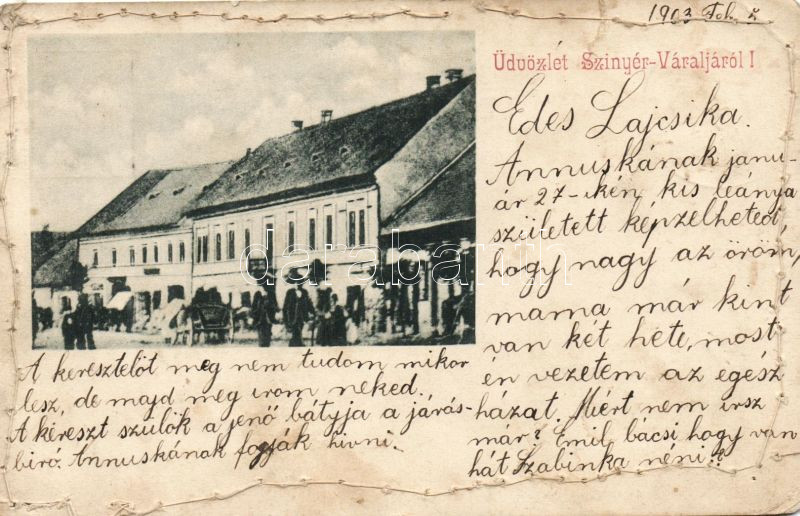 1903 Feb 2
Üdvözlet Szinyér-Váraljáról!
Edes Lajcsika.
Annuskának janu-
ár 27-iken kis leánya
született képzelheted
hogy nagy az öröm,
mama már kint
van két hete, most
én vezetem az egész
házat. Miért nem irsz
már? Emil bácsi hogy van
hát Szabinka néni??
A keresztelöt meg nem tudom mikor
lesz, de majd meg irom neked.
A kereszt szülök a jenő bátyja a járás-
biró. Annuskának fogják hivni.
darabanth